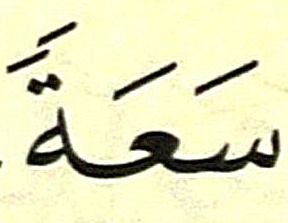 سَعَةً